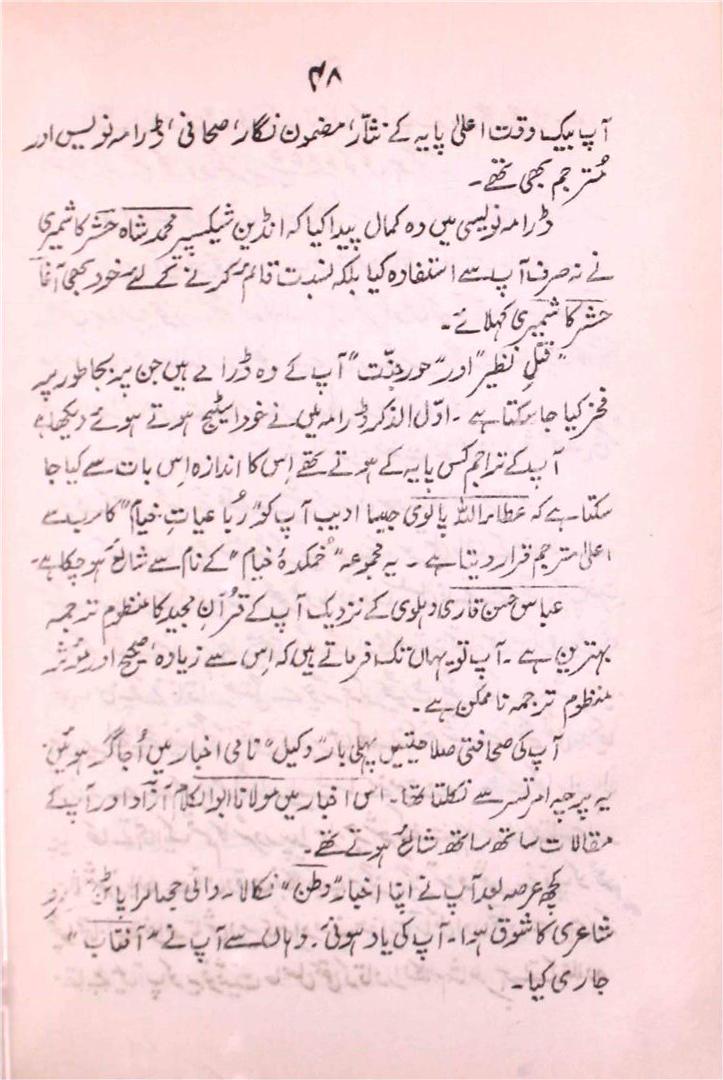 ۴۸
آپ بیک وقت اعلیٰ پایہ کے نثّار، مضمون نگار، صحافی، ڈرامہ نویس اور
مُترجم بھی تھے۔
ڈرامہ نویسی میں وہ کمال پیدا کیا کہ انڈین شیکسپیر محمد شاہ حشر کاشمیری
نے نہ صرف آپ سے استفادہ کیا بلکہ نسبت قائم کرنے کے لئے خود بھی آغا
حشر کاشمیری کہلائے۔
"قتلِ نظیر" اور "حورِ جنّت" آپ کے وہ ڈرامے ہیں جن پر بجا طور پر
فخر کیا جا سکتا ہے۔ اوّل الذکر ڈرامہ میں نے خود اسٹیج ہوتے ہوئے دیکھا ہے
آپ کے تراجم کس پایہ کے ہوتے تھے اِس کا اندازہ اِس بات سے کیا جا
سکتا ہے کہ عطاء اللہ پالوی جیسا ادیب آپ کو "رُباعیاتِ خیام" کا سب سے
اعلیٰ مترجم قرار دیتا ہے۔ یہ مجموعہ "خمکدۂ خیام" کے نام سے شائع ہو چکا ہے۔
عباس حسن قاری دہلوی کے نزدیک آپ کے قُرآنِ مجید کا منظوم ترجمہ
بہترین ہے۔ آپ تو یہاں تک فرماتے ہیں کہ اِس سے زیادہ صحیح اور مؤثر
منظوم ترجمہ ناممکن ہے۔
آپ کی صحافتی صلاحیتیں پہلی بار "وکیل" نامی اخبار میں اُجاگر ہوئیں۔
یہ پرچہ امرتسر سے نکلتا تھا۔ اس اخبار میں مولانا ابوالکلام آزاد اور آپ کے
مقالات ساتھ ساتھ شائع ہوتے تھے۔
کچھ عرصہ بعد آپ نے اپنا اخبار "وطن" نکالا۔ والی جھالرا پاٹن کو
شاعری کا شوق ہوا۔ آپ کی یاد ہوئی۔ وہاں سے آپ نے "آفتاب"
جاری کیا۔